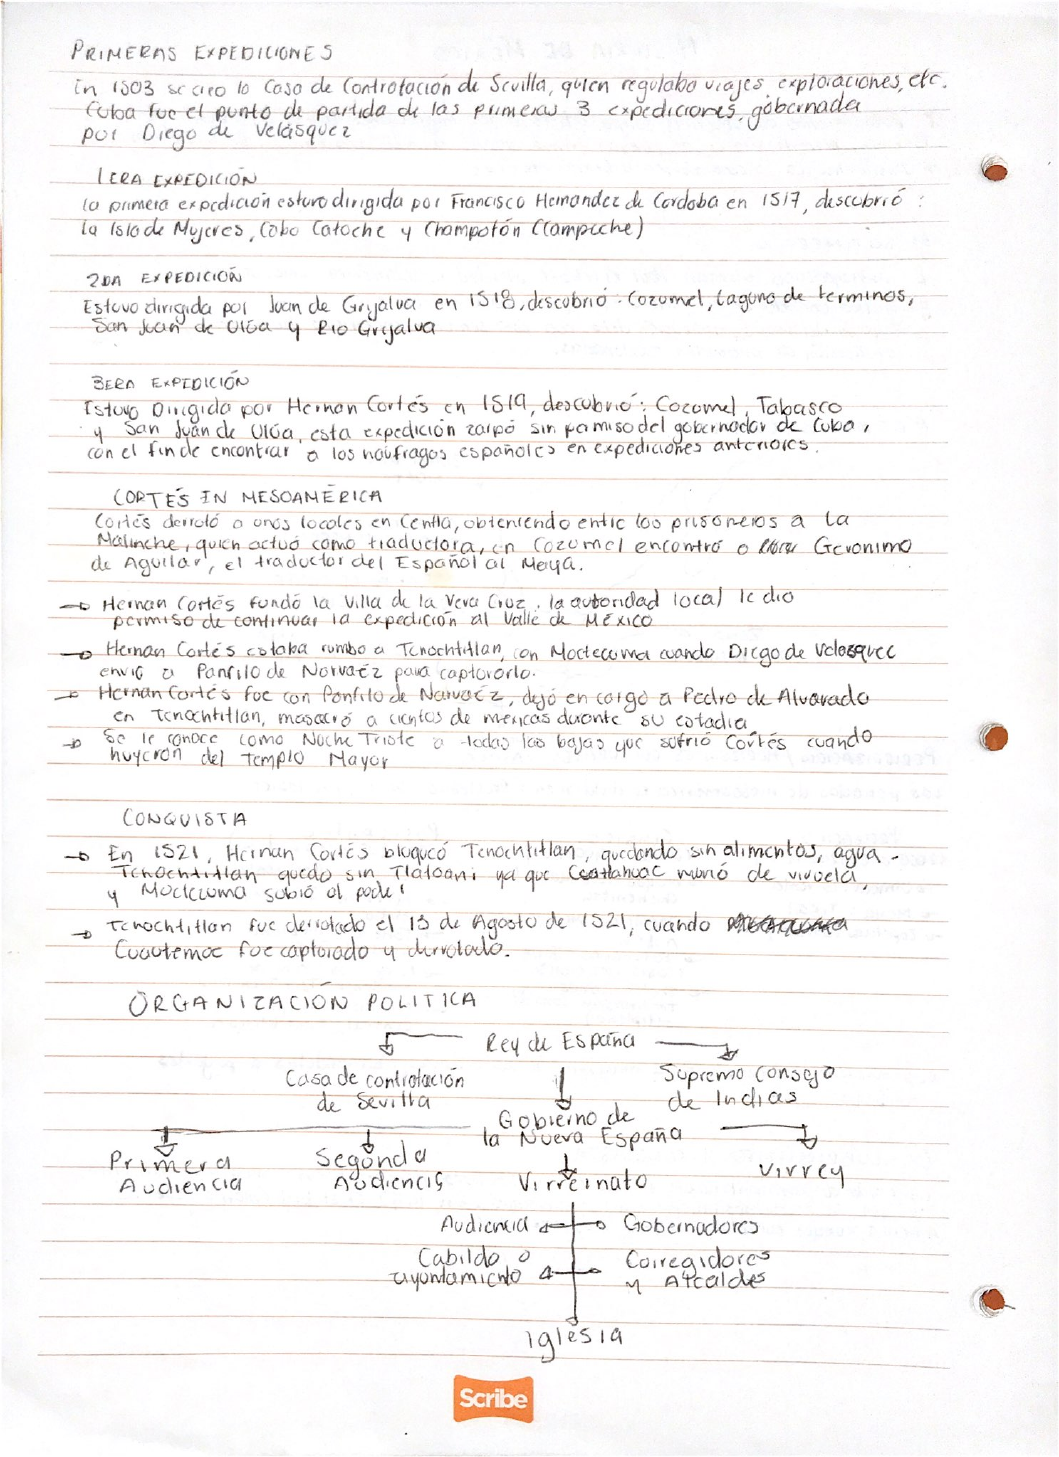 PRIMERAS EXPEDICIONES
En 1503 se creo la Casa de Controtación de Sevilla, quien regulaba viajes, exploraciones, etc.
Cuba fue el punto de partida de las primeras 3 expediciones, gobernada
por Diego de Velásquez
1ERA EXPEDICIÓN
la primera expedición estuvo dirigida por Francisco Hernandez de Cordoba en 1517, descubrió :
la Isla de Mujeres, Cabo Catoche y Champotón (Campeche)
2DA EXPEDICIÓN
Estuvo dirigida por Juan de Gryalva en 1518, descubrió : Cozumel, Laguna de terminos,
San Juan de Ulúa y Rio Grijalva
3ERA EXPEDICIÓN
Estuvo Dirigida por Hernan Cortés en 1519, descubrió : Cozumel, Tabasco
y San Juán de Ulúa, esta expedición zarpó sin permiso del gobernador de Cuba,
con el fin de encontrar a los naúfragos españoles en expediciones anteriores.
CORTÉS EN MESOAMÉRICA
Cortés derrotó a unos locales en Centla, obteniendo entre los prisoneros a la
Malinche, quien actuó como traductora, en Cozumel encontró a Geronimo
de Aguilar, el traductor del Español al Maya.
→ Hernan Cortés fundó la Villa de la Vera Cruz, la autoridad local le dio
permiso de continuar la expedición al Valle de México
→ Hernan Cortés estaba rumbo a Tenochtitlan, con Moctecuma cuando Diego de Velasquez
envió a Panfilo de Narvaéz para capturarlo.
→ Hernan Cortés fue con Panfilo de Narvaéz, dejó en cargo a Pedro de Alvarado
en Tenochtitlan, masacró a cientos de mexicas durante su estadia
→ Se le conoce como Noche Triste a todas las bajas que sufrió Cortés cuando
huyeron del Templo Mayor
CONQUISTA
→ En 1521, Hernan Cortés bloqueó Tenochtitlan, quedando sin alimentos, agua -
Tenochtitlan quedo sin Tlatoani ya que Cuitlahuac murió de viruela,
y Moctecuma subió al poder
→ Tenochtitlan fue derrotado el 13 de Agosto de 1521, cuando
Cuautemoc fue capturado y derrotado.
ORGANIZACIÓN POLITICA
Rey de España
Casa de contratación Supremo Consejo
de Sevilla de Indias
Gobierno de
la Nueva España
Primera Segunda Virreinato Virrey
Audiencia Audiencis
Audiencia Gobernadores
Cabildo o Corregidores
ayuntamiento y Alcaldes
Iglesia
Scribe